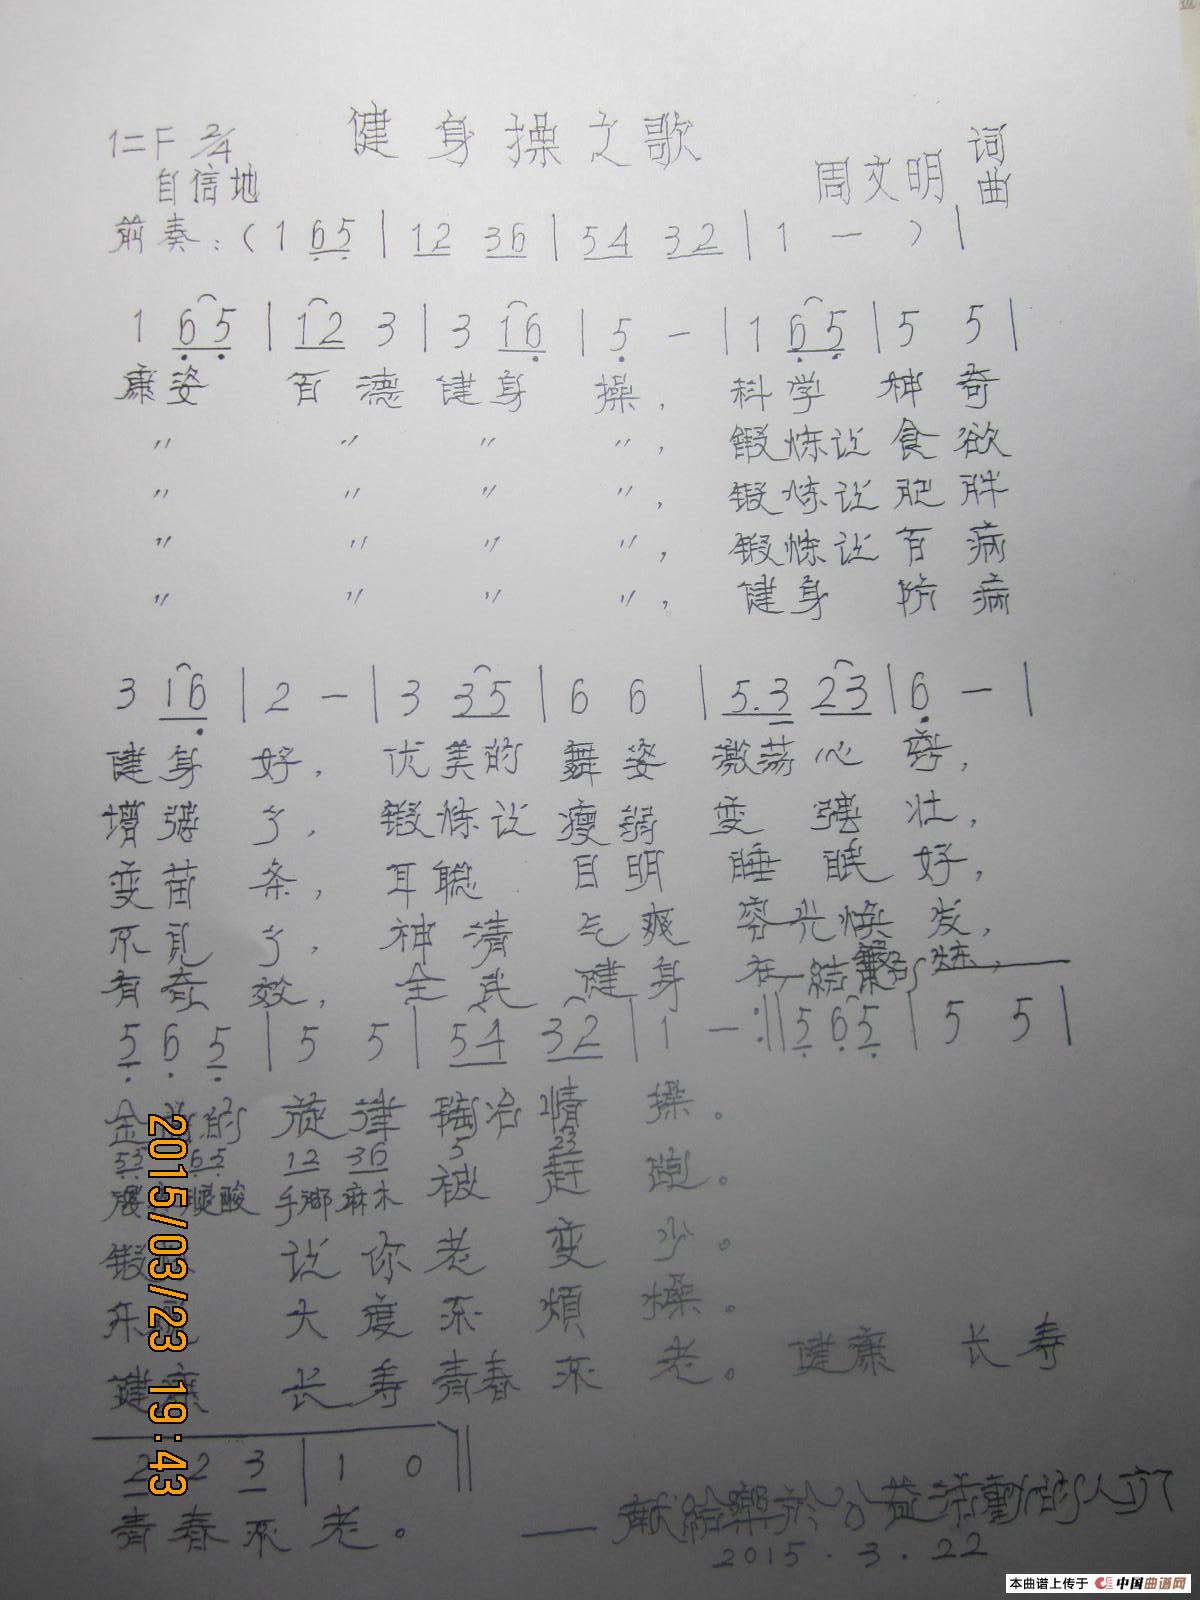 健身操之歌
1=F 2/4
自信地
周文明 词曲
前奏：( 1 65 | 12 36 | 54 32 | 1 — ) |
1 65 | 12 3 | 3 16 | 5 — | 1 65 | 5 5 |
康姿 百德健身 操， 科学 神奇
〃 〃 〃 〃， 锻炼让食欲
〃 〃 〃 〃， 锻炼让肥胖
〃 〃 〃 〃， 锻炼让百病
〃 〃 〃 〃， 健身 防病
3 16 | 2 — | 3 35 | 6 6 | 5.3 23 | 6 — |
健身 好， 优美的 舞姿 激荡心 窍，
增强 了， 锻炼让 瘦弱 变 强 壮，
变苗 条， 耳聪 目明 睡 眠 好，
不见 了， 神清 气爽 容光焕 发，
有奇 效， 全民 健身 在 锻炼，
结束句
5 6 5 | 5 5 | 54 32 | 1 — :‖ 5 6 5 | 5 5 |
的 旋律 陶冶情 操。
55 65 12 36 5 23
腰 腿酸 手脚麻木 被 赶 跑。
锻 让你老 变 少。
乐 大度不 煩 燥。
健康 长寿青春 不 老。 健康 长寿
2 2 3 | 1 0 ‖
青春不 老。
—— 献给樂於公益活動的人们
2015.3.22
2015/03/23 19:43
本曲谱上传于 中国曲谱网